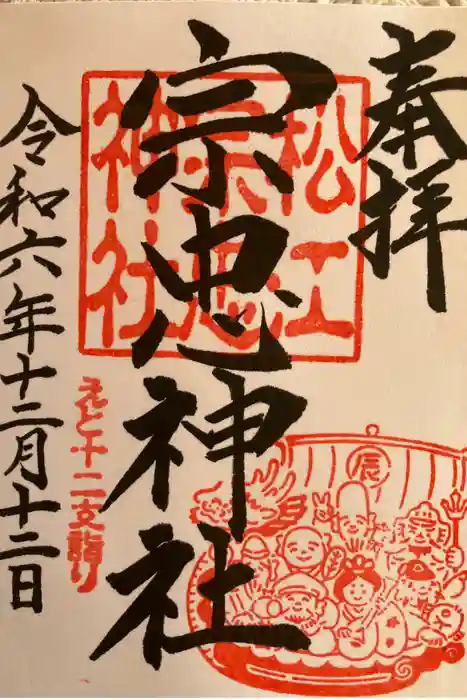 奉拝
松江
宗忠
神社
宗忠神社
辰
えと十二支詣り
令和六年十二月十二日